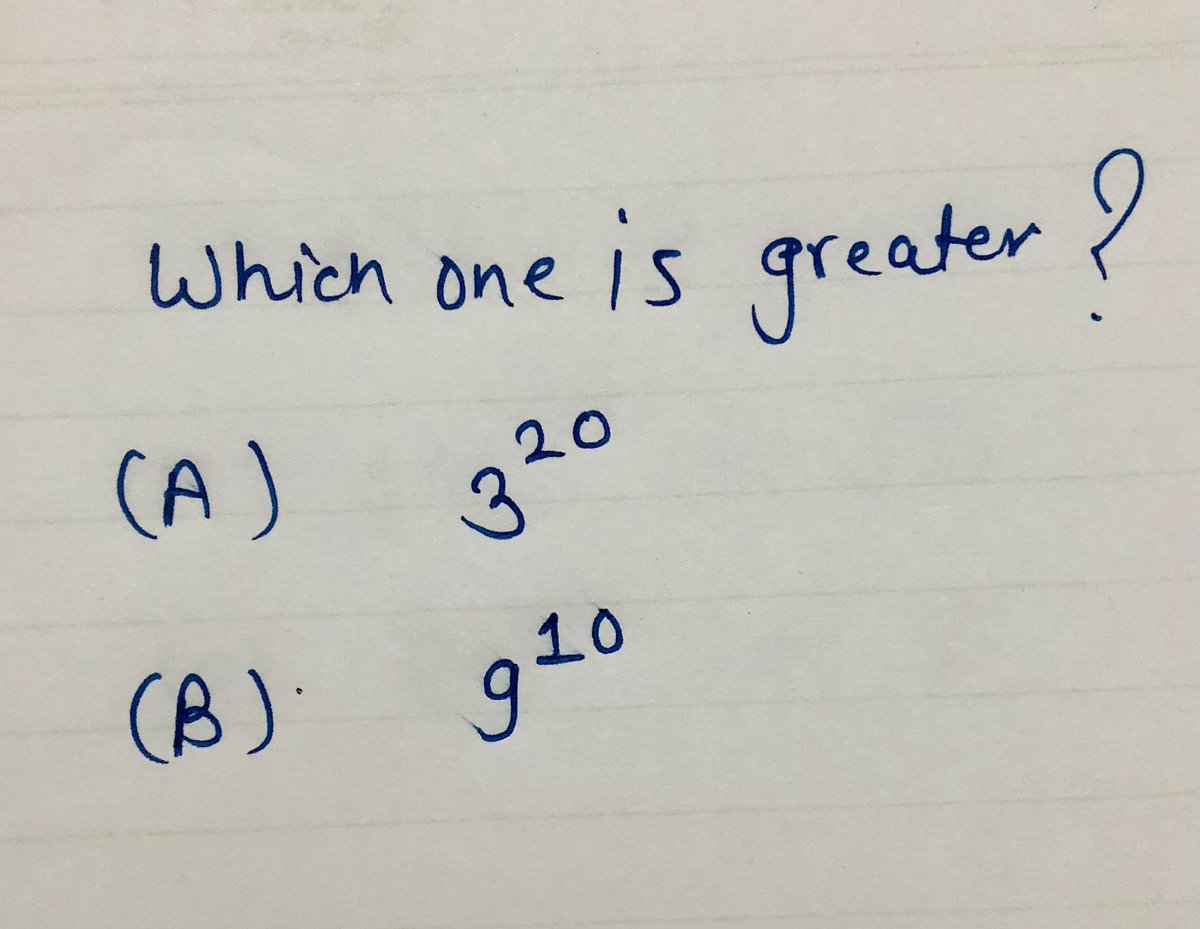 Which one is greater?
(A) 3²⁰
(B) 9¹⁰